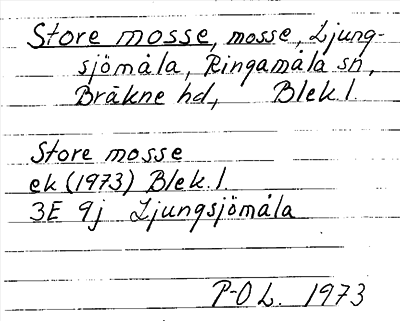 Store mosse, mosse, Ljung-
sjömåla, Ringamåla sn,
Bräkne hd, Blek l.
Store mosse
ek (1973) Blek. l.
3E 9j Ljungsjömåla
P-O L. 1973